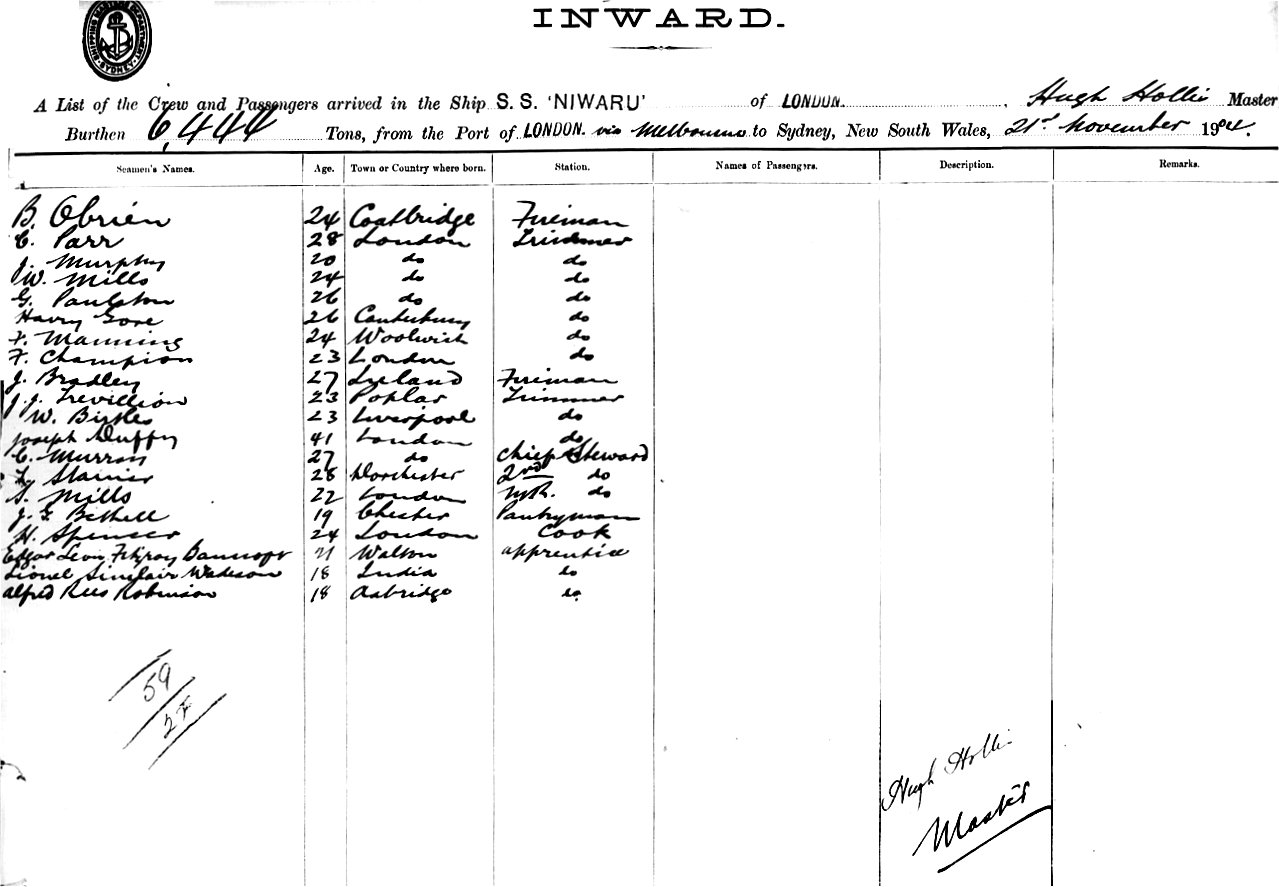 SHIPPING MASTERS DEPARTMENT SYDNEY
INWARD.
A List of the Crew and Passengers arrived in the Ship S. S. 'NIWARU' of LONDON. , Hugh Hollis Master
Burthen 6,444 Tons, from the Port of LONDON. via Melbourne to Sydney, New South Wales, 21st November 1904.
Seamen's Names. Age. Town or Country where born. Station. Names of Passengers. Description. Remarks.
B. Obrien 24 Coatbridge Fireman
C. Parr 28 London Trimmer
J. Murphy 20 do do
W. Mills 24 do do
G. Paulston 26 do do
Harry Gore 26 Canterbury do
F. Manning 24 Woolwich do
F. Champion 23 London do
J. Bradley 27 Ireland Fireman
J. J. Trevillion 23 Poplar Trimmer
W. Birtles 23 Liverpool do
Joseph Duffy 41 London do
C. Murray 27 do Chief Steward
Stainer 28 Dorchester 2nd do
S. Mills 22 London M.R. do
J. G. Bethell 19 Chester Pantryman
H. Spencer 24 London Cook
Edgar Leon Fitzroy Bancroft 21 Walton apprentice
Lionel Sinclair Wadeson 18 India do
Alfred Rees Robinson 18 do
59
27
Hugh Hollis
Master